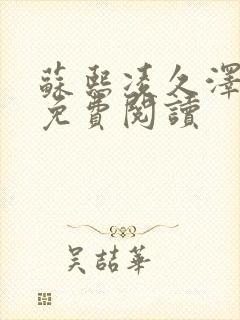 蘇熙凌久澤
免費閱讀
吳喆華